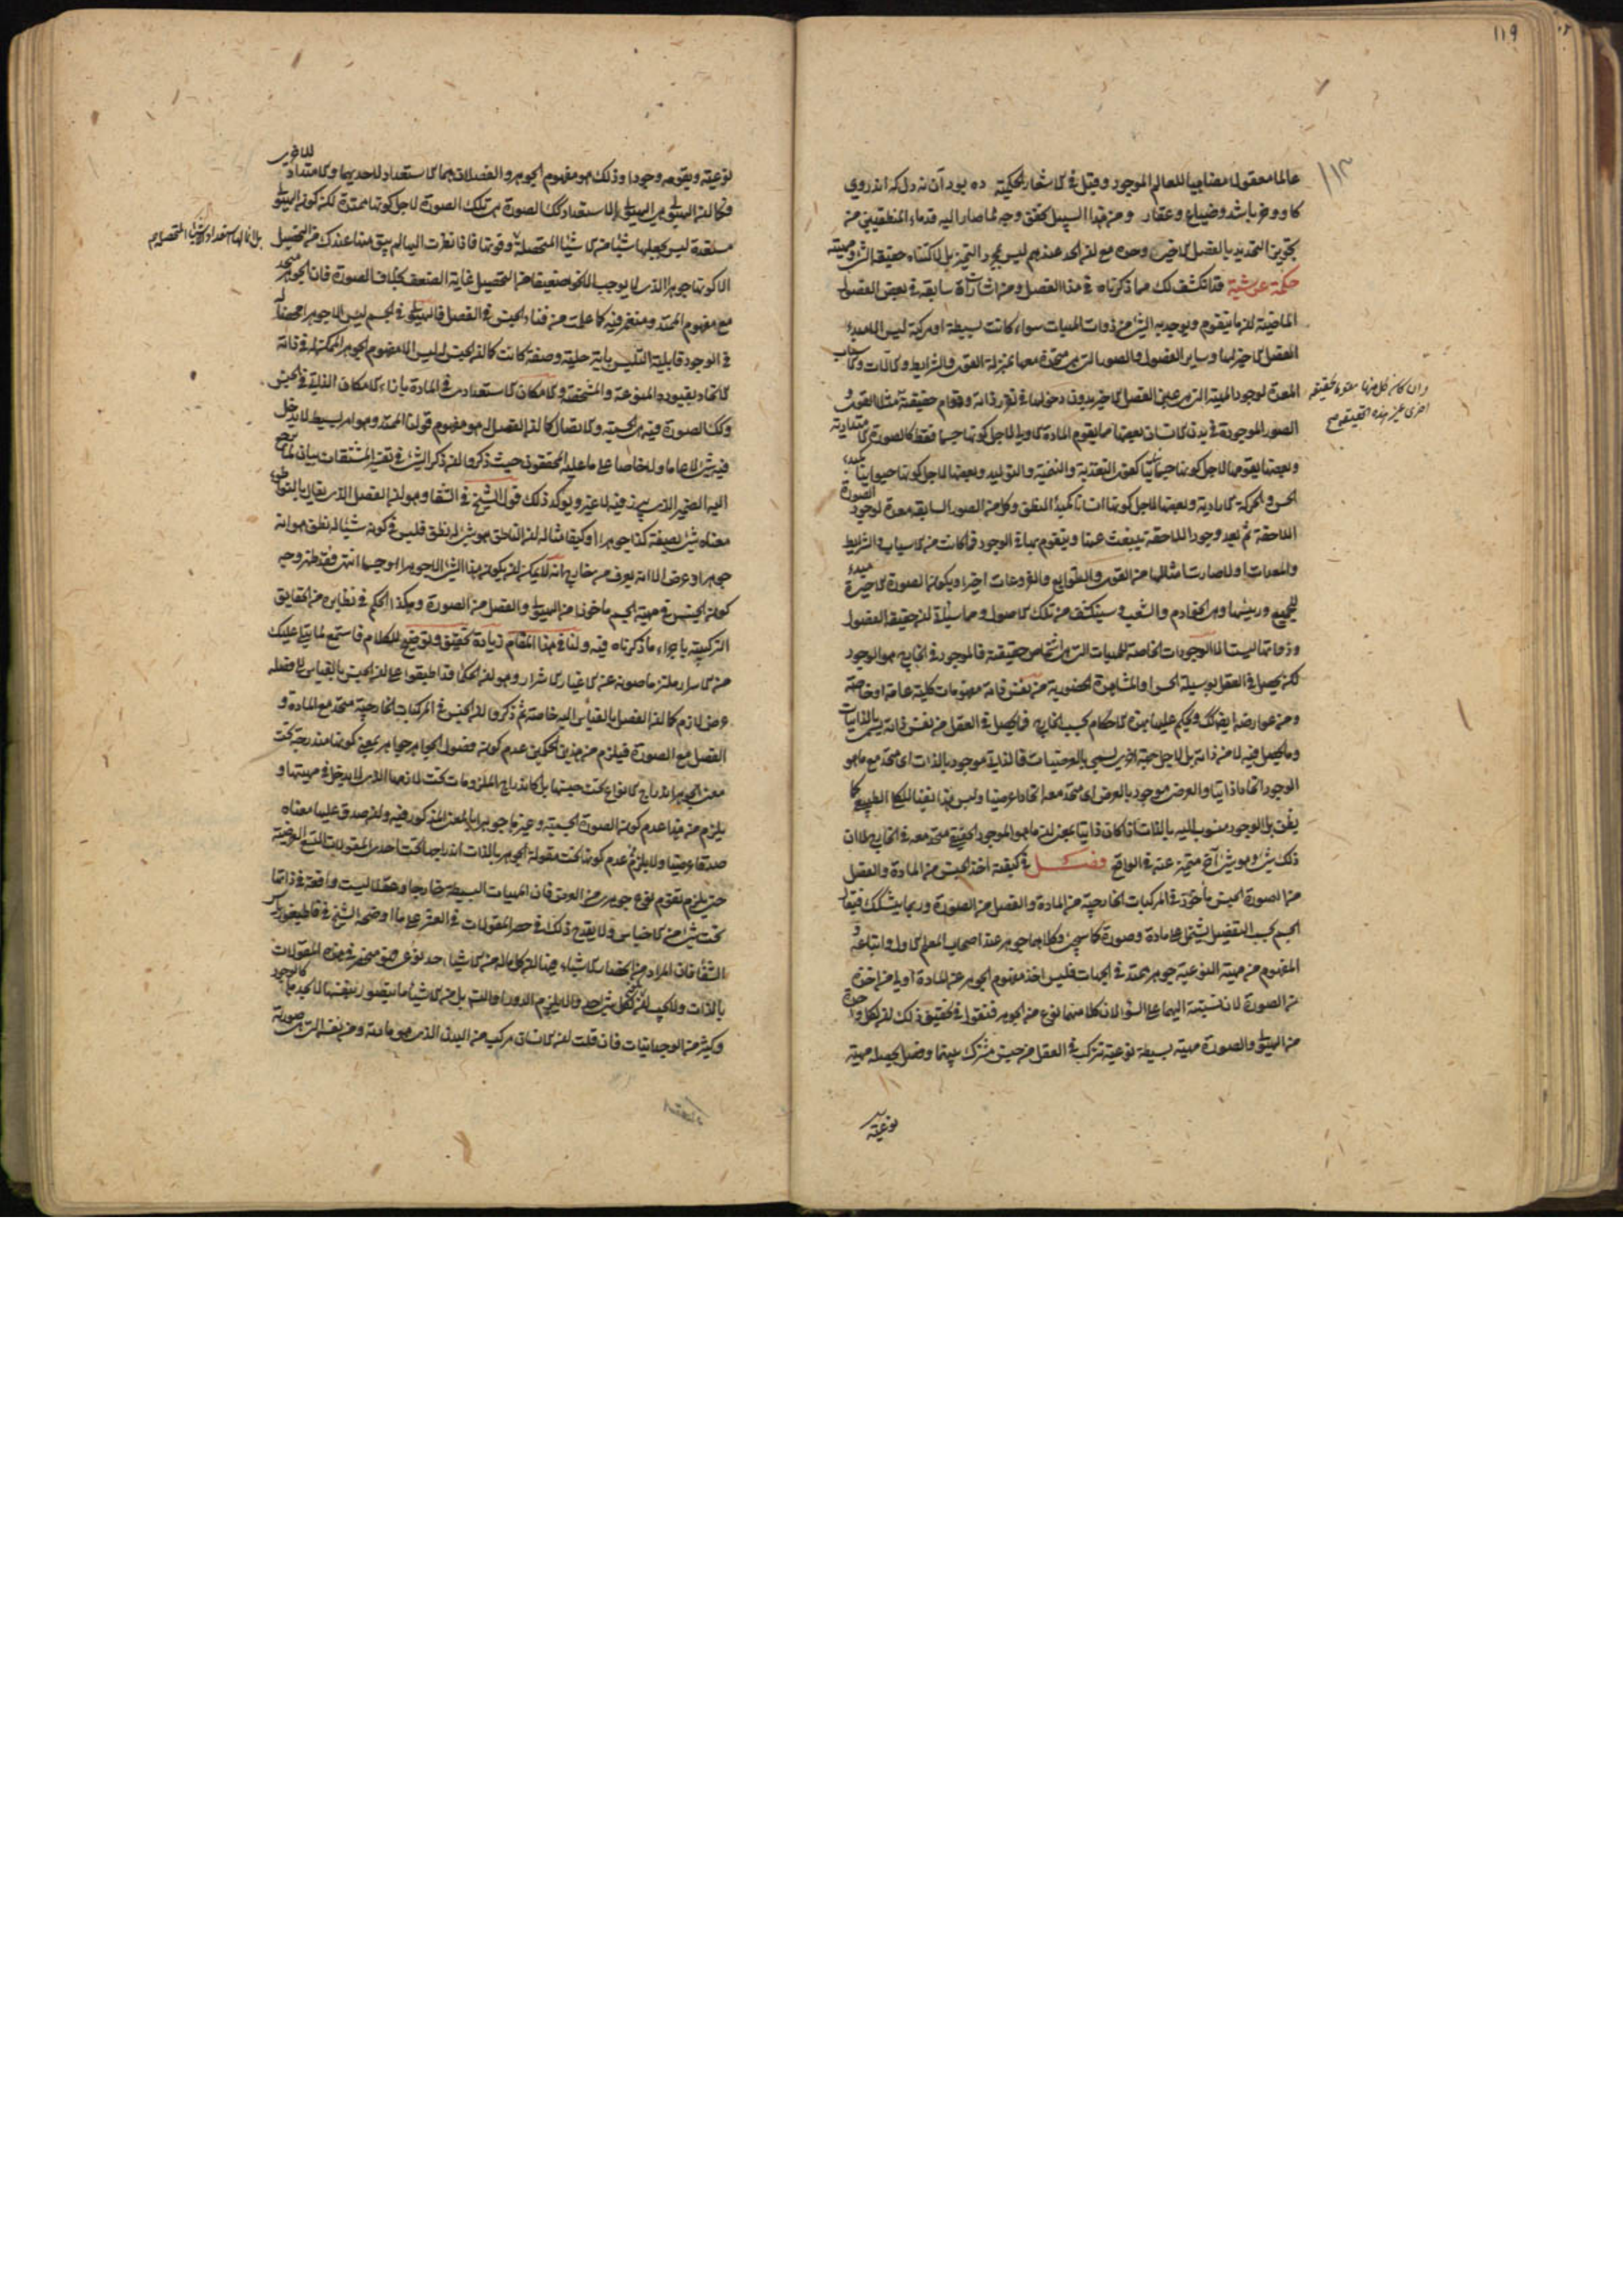 ١١٩
١١٣
عالما معقولا مضاهيا للعالم الموجود وقيل في الاشعار الحكمية ده بود آن نه دل كه اندروى
كاو وخر باشد وضياع وعقار ومن هذا السبيل تحقق وجه لما صار اليه قدماء المنطقيين من
تجويز التحديد بالفصل الاخير وحده مع ان الحد عندهم ليس لمجرد التميز بل لاكتناه حقيقة الشئ ومهيته
حكمة عرشية قد انكشف لك مما ذكرناه في هذا الفصل ومن اشارات سابقة في بعض الفصول
الماضية ان ما يتقوم ويوجد به الشئ من ذوات المهيات سواء كانت بسيطة او مركبة ليس الا مبدء
الفصل الاخير لها وساير الفصول والصور التي هي متحدة معها بمنزلة القوى والشرايط والالات والاسباب
المعدة لوجود المهية التي هي عين الفصل الاخير بدون دخولها في تقرر ذاته وقوام حقيقته مثلا القوى و
وان كان كل منها مقوما لحقيقة
اخرى غير هذه الحقيقة صح
الصور الموجودة في بدن الانسان بعضها مما يقوم المادة الاولى لاجل كونها جسما فقط كالصورة الامتدادية
وبعضها يقومها لاجل كونها جسما نباتيا كقوى التغذية والتنمية والتوليد وبعضها لاجل كونها حيوانيا كمبدء
الحس والحركة الارادية وبعضها لاجل كونها انسانا كمبدأ النطق وكل من الصور السابقة معدة لوجود الصورة
اللاحقة ثم بعد وجود اللاحقة ينبعث عنها ويتقوم بها في الوجود فما كانت من الاسباب والشرايط
والمعدات اولا صارت امثالها من القوى والتوابع والفروعات اخيرا ويكون الصورة الاخيرة مبدء
للجميع ورئيسها وهي الخوادم والشعب وسينكشف من تلك الاصول ومما سيتلى ان حقيقة الفصول
وذواتها ليست الا الوجودات الخاصة للمهيات التي هي اشخاص حقيقية فالموجود في الخارج هو الوجود
لكن يحصل في العقل بوسيلة الحس او المشاهدة الحضورية من نفس ذاته مفهومات كلية عامة او خاصة
ومن عوارضه ايضا كذلك ويحكم عليها بهذه الاحكام بحسب الخارج فما يحصل في العقل من نفس ذاته يسمى بالذاتيات
وما يحصل فيه لا من ذاته بل لاجل جهة اخرى يسمى بالعرضيات فالذاتي موجود بالذات اى متحد مع ما هو
الوجود اتحادا ذاتيا والعرضي موجود بالعرض اى متحد معه اتحادا عرضيا وليس هذا نفيا للكلي الطبيعي كما
يظن بل الوجود منسوب اليه بالذات اذا كان ذاتيا بمعنى ان ما هو الموجود الحقيقي متحد معه في الخارج لا ان
ذلك شئ وهو شئ آخر متميز عنه في الواقع فصل في كيفية اخذ الجنس من المادة والفصل
من الصورة الجنس مأخوذ في المركبات الخارجية من المادة والفصل من الصورة وربما يشكل فيقال
الجسم بحسب التفصيل يشتمل على مادة وصورة كما سيجئ وكلاهما جوهر عند اصحاب المعلم الاول واتباعه و
المفهوم من مهيته النوعية جوهر ممتد في الجهات فليس اخذ مفهوم الجوهر عن المادة اولى من اخذه
من الصورة لان نسبته اليهما على السواء لان كلا منهما نوع من الجوهر فنقول في تحقيق ذلك ان لكل واحدة
من الهيولى والصورة مهية بسيطة نوعية تتركب في العقل من جنس مشترك بينهما وفصل يحصله مهية
نوعية
نوعية ويقومه وجودا وذلك هو مفهوم الجوهر والفصلان هما الاستعداد لاحديهما والامتداد للاخرى
فكما ان الهيولى هي الهيولى بالاستعداد كك الصورة هي تلك الصورة لاجل كونها ممتدة لكن كون الهيولى
مستعدة ليس يجعلها شيئا من الاشياء المتحصلة وقوتها فاذا نظرت اليها لم يبق منها عندك من التحصيل
بل انما لها استعداد الاشياء المتحصلة صح
الا كونها جوهرا الذي لا يوجب الا نحوا ضعيفا من التحصيل غاية الضعف بخلاف الصورة فان الجوهر متحد
مع مفهوم الممتد ومنغمر فيه كما علمت من فناء الجنس في الفصل فالهيولى في الجسم ليس الا جوهرا محضا له
في الوجود قابلية التلبس باية حلية وصفة كانت كما ان الجنس له ليس الا مفهوم الجوهر الممكن له في ذاته
الاتحاد بقيوده المنوعة والمشخصة والامكان الاستعدادي في المادة بازاء الامكان الذاتي في الجنس
وكك الصورة فيه هي الجسمية والاتصال كما ان الفصل له هو مفهوم قولنا الممتد وهو امر بسيط لا يدخل
فيه شئ لا عاما ولا خاصا على ما عليه المحققون حيث ذكروا ان ذكر الشئ في تفسير المشتقات بيان لما يرجع
اليه الضمير الذي يذكر فيه لا غير ويؤكد ذلك قول الشيخ في الشفا وهو ان الفصل الذي يقال بالتواطئ
معناه شئ بصفة كذا جوهرا او كيفا مثاله ان الناطق هو شئ له نطق فليس في كونه شيئا له نطق هو انه
جوهر او عرض الا انه يعرف من خارج انه لا يمكن ان يكون هذا الشئ الا جوهرا او جسما انتهى فقد ظهر وجه
كون الجنس في مهية الجسم مأخوذا من الهيولى والفصل من الصورة وهكذا الحكم في نظايره من الحقايق
التركيبية باجراء ما ذكرناه فيه ولنا في هذا المقام زيادة تحقيق وتوضيح للكلام فاستمع لما يتلى عليك
من الاسرار ملتزما صونه عن الاغيار الاشرار وهو ان الحكماء قد اطبقوا على ان الجنس بالقياس الى فصله
عرض لازم كما ان الفصل بالقياس اليه خاصة ثم ذكروا ان الجنس في المركبات الخارجية متحد مع المادة و
الفصل مع الصورة فيلزم من هذين الحكمين عدم كون فصول الجواهر جواهر بمعنى كونها مندرجة تحت
معنى الجوهر اندراج الانواع تحت جنسها بل كاندراج الملزومات تحت لازمها الذي لا يدخل في مهيتها و
يلزم من هذا عدم كون الصورة الجسمية وغيرها جوهرا بالمعنى المذكور فيه وان صدق عليها معناه
صدقا عرضيا ولا يلزم من عدم كونها تحت مقولة الجوهر بالذات اندراجها تحت احدى المقولات التسع العرضية
حتى يلزم تقوم نوع جوهري من العرض فان المهيات البسيطة خارجا وعقلا ليست واقعة في ذاتها
تحت شئ من الاجناس ولا يقدح ذلك في حصر المقولات في العشر على ما اوضحه الشيخ في قاطيغورياس
الشفا فان المراد من انحصار الاشياء فيها ان كل ما له من الاشياء حد نوعي فهو منحصر في هذه المقولات
بالذات ولا يجب ان يكون لكل شئ حد والا يلزم الدور او التسلسل بل من الاشياء ما يتصور بنفسها لا بحدها كالوجود
وكثير من الوجدانيات فان قلت ان الانسان مركب من البدن الذي هو مادته ومن نفسه التي هي صورته